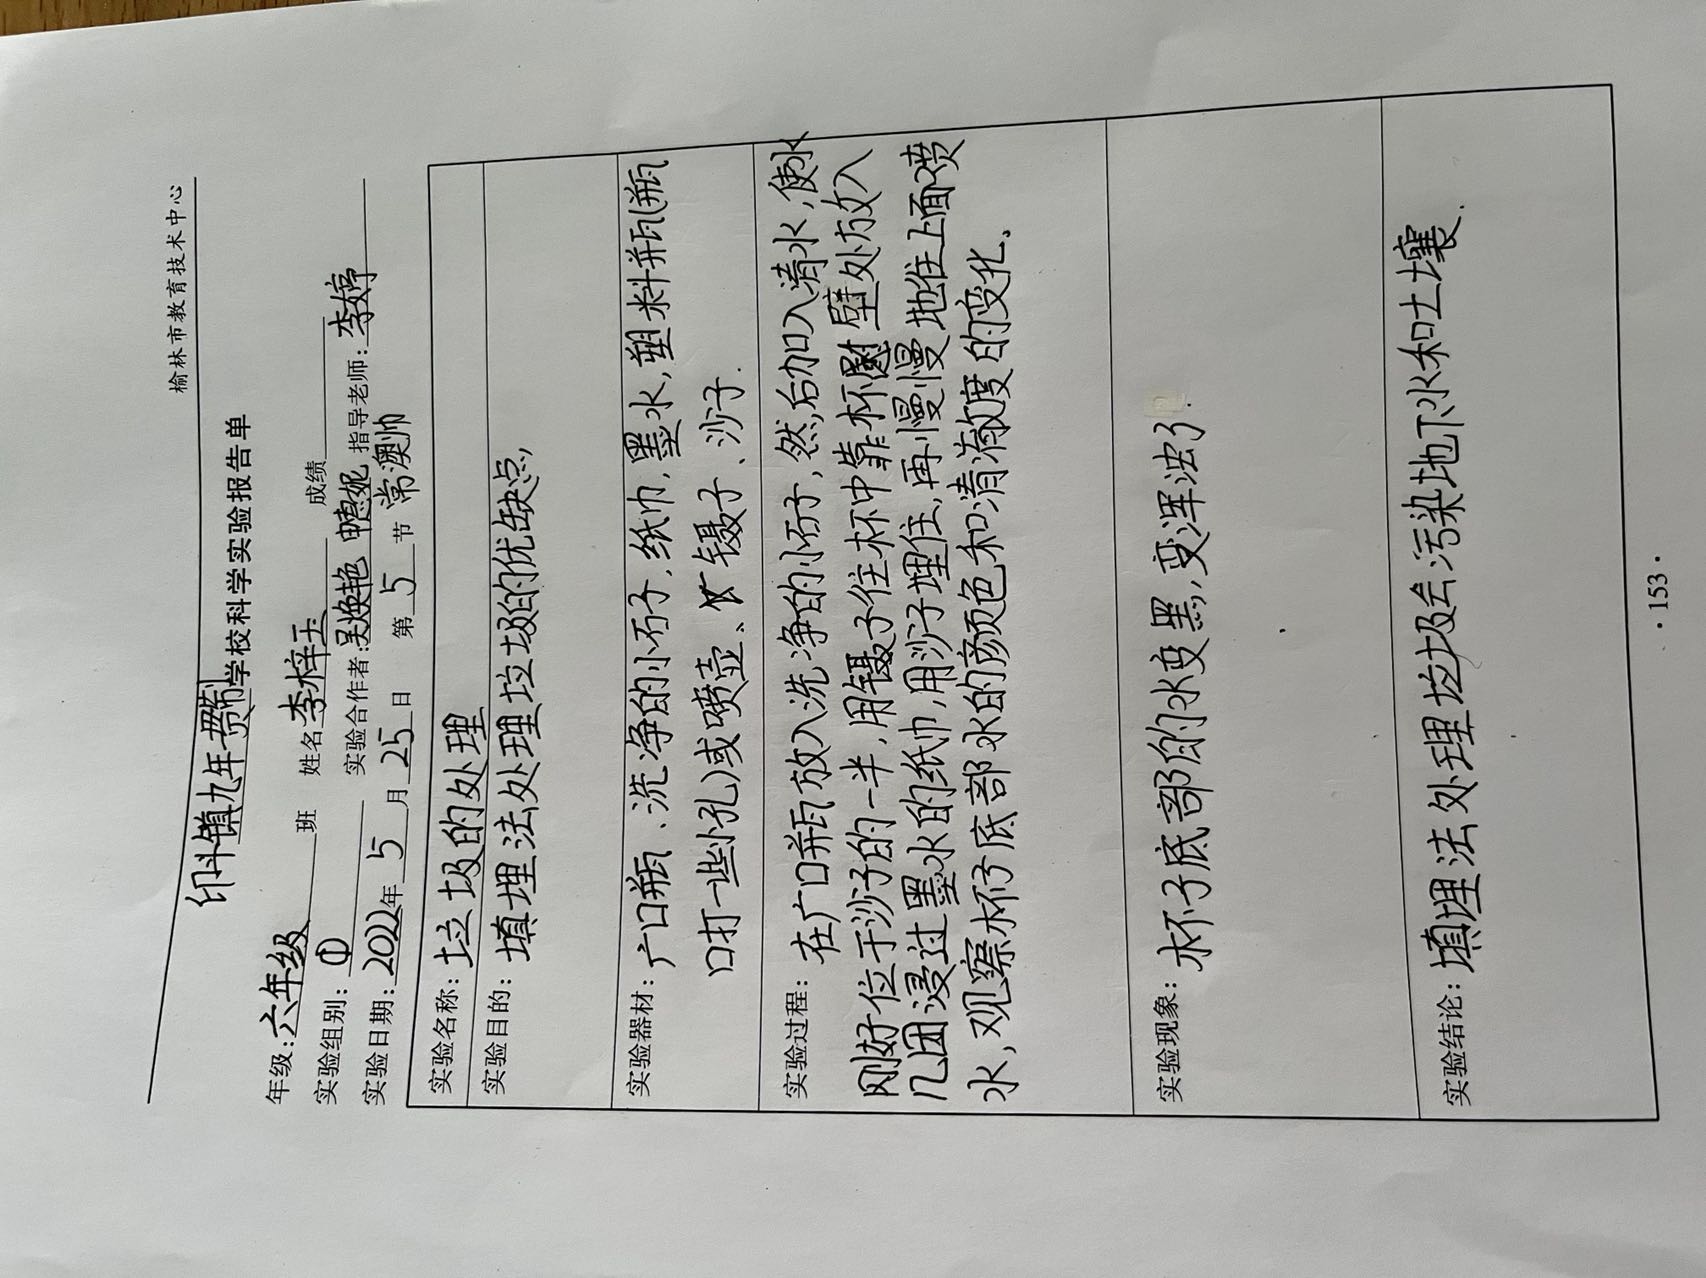 榆林市教育技术中心
印斗镇九年一贯制学校科学实验报告单
年级：六年级 班 姓名李梓玉 成绩
实验组别：① 实验合作者：吴焕艳 指导老师：李婷
实验日期：2022年5月25日 第5节 常澳帅
实验名称：垃圾的处理
实验目的：填埋法处理垃圾的优缺点,
实验器材：广口瓶、洗净的小石子,纸巾,墨水,塑料瓶(瓶
口打一些小孔)或喷壶、镊子、沙子.
实验过程：在广口瓶放入洗净的小石子,然后加入清水,使水
刚好位于沙子的一半,用镊子住杯中靠杯壁处放入
几团浸过墨水的纸巾,用沙子埋住,再慢慢地住上面喷
水,观察水杯子底部水的颜色和清澈度的变化。
实验现象：水杯子底部的水变黑,变浑浊了.
实验结论：填埋法处理垃圾会污染地下水和土壤.
·153·